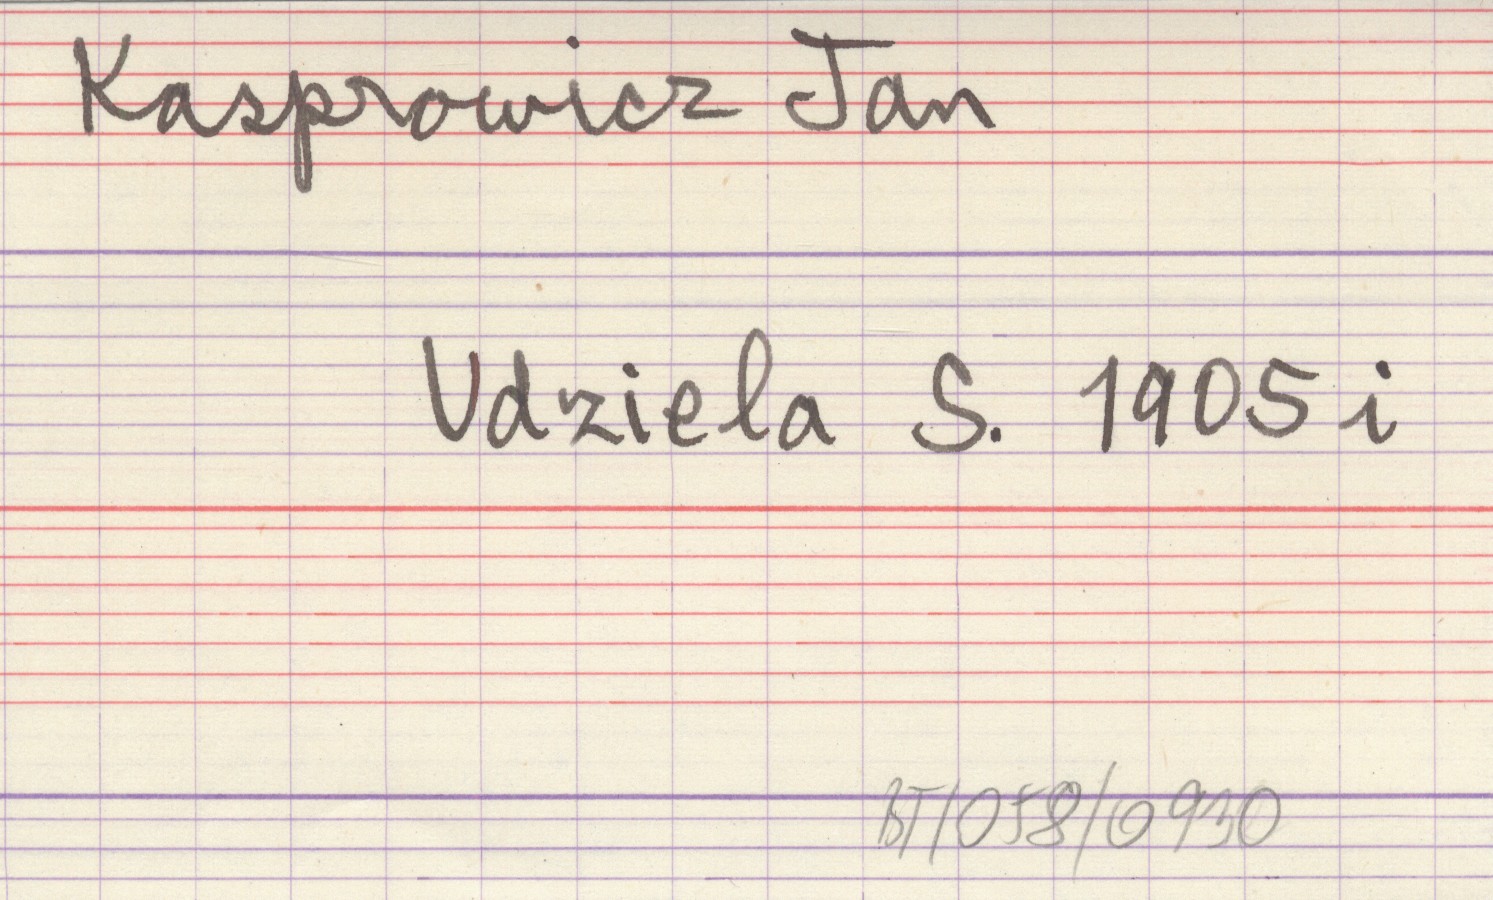 Kasprowicz Jan
Udziela S. 1905 i
BT/058/0930